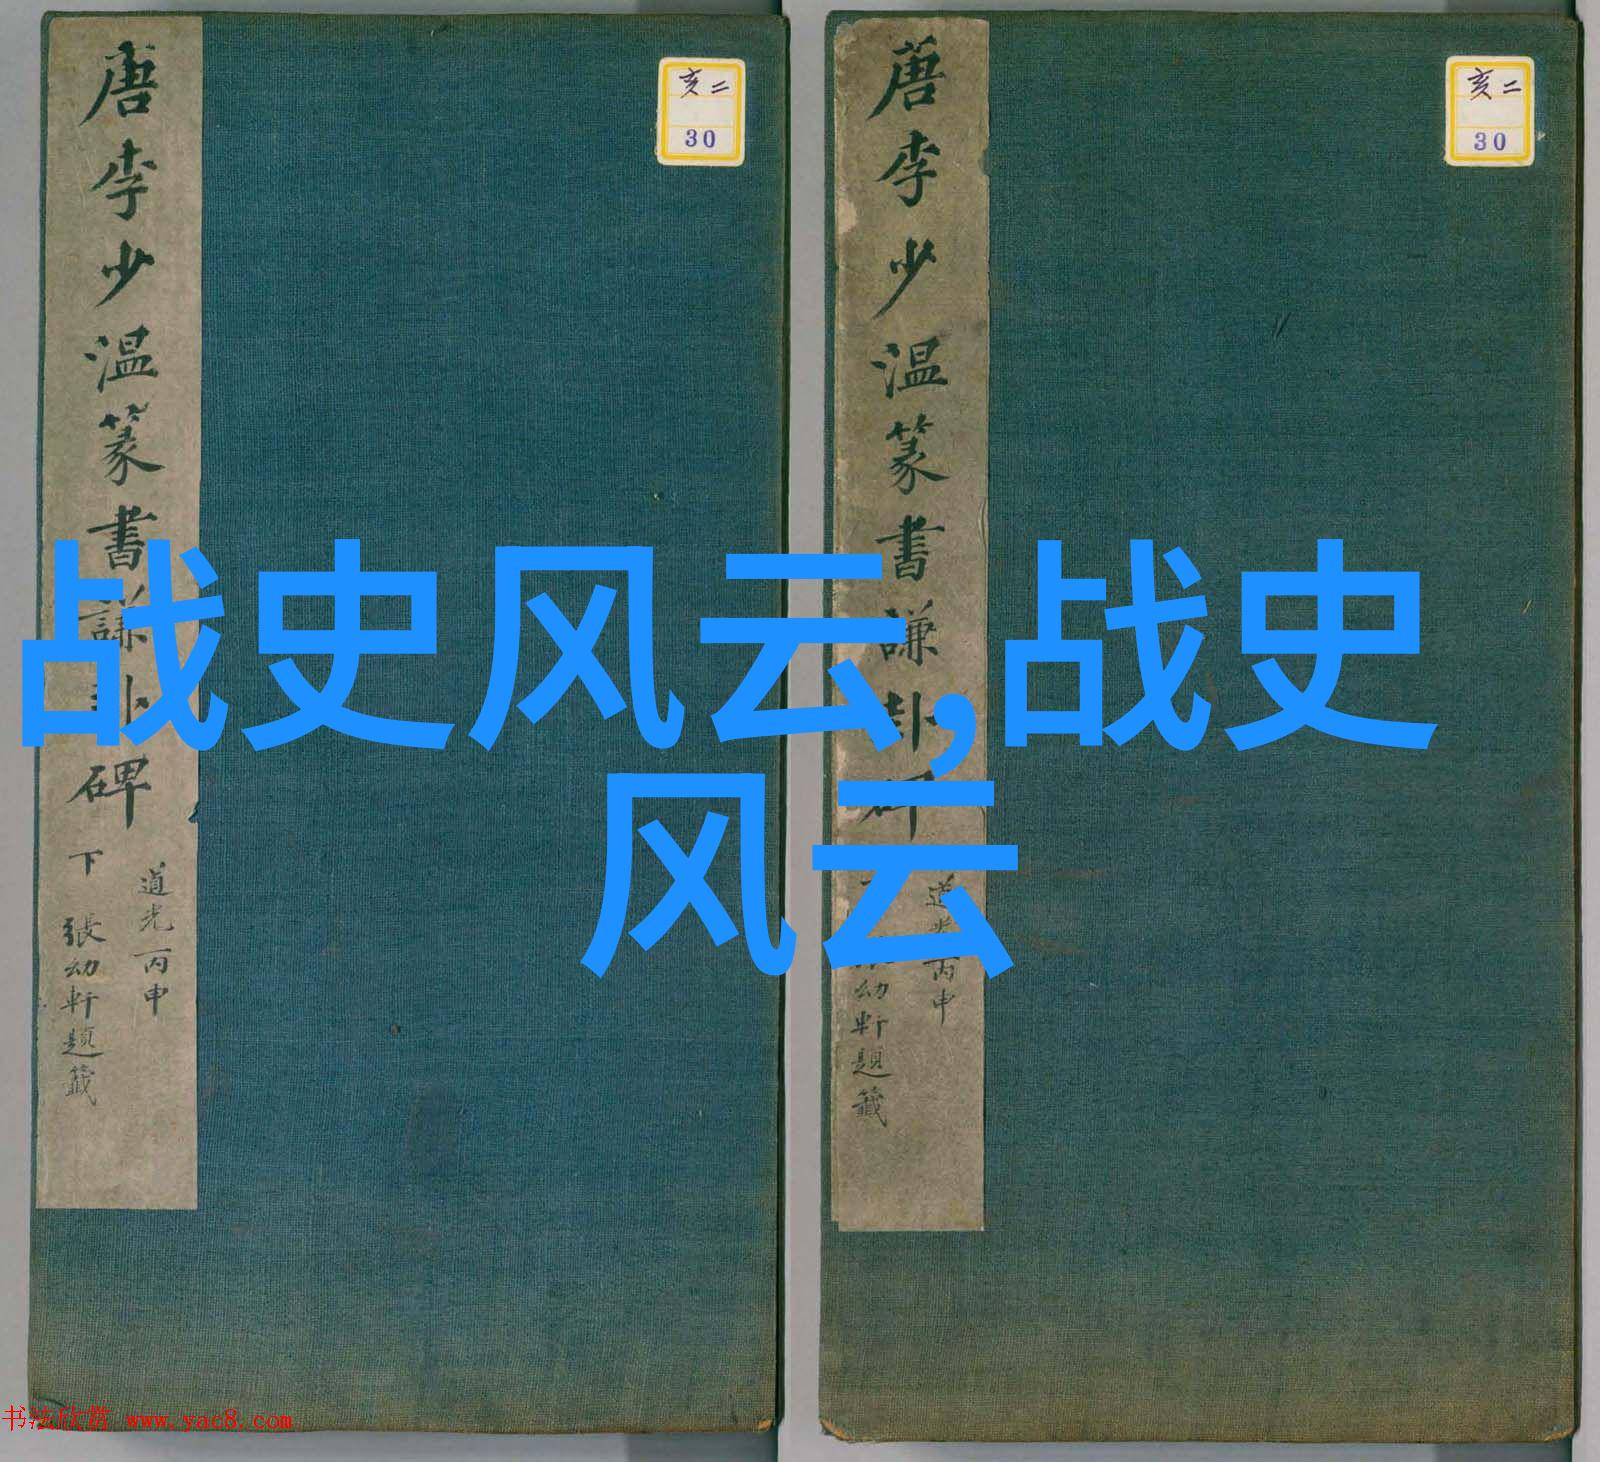 唐李少温篆書謙卦碑
下
道光丙申
張幼軒題籤
亥二
30
唐李少温篆書謙卦碑
道光丙申
幼軒題籤
亥二
30
战史风云,战史
风云
书法欣赏 www.yac8.com